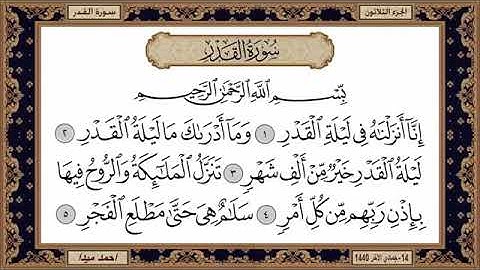 سورة القدر
الجزء الثلاثون
سُورَةُ القَدْرِ
بِسْمِ اللَّهِ الرَّحْمَٰنِ الرَّحِيمِ
إِنَّا أَنزَلْنَاهُ فِي لَيْلَةِ الْقَدْرِ ١ وَمَا أَدْرَاكَ مَا لَيْلَةُ الْقَدْرِ ٢
لَيْلَةُ الْقَدْرِ خَيْرٌ مِّنْ أَلْفِ شَهْرٍ ٣ تَنَزَّلُ الْمَلَائِكَةُ وَالرُّوحُ فِيهَا
بِإِذْنِ رَبِّهِم مِّن كُلِّ أَمْرٍ ٤ سَلَامٌ هِيَ حَتَّىٰ مَطْلَعِ الْفَجْرِ ٥
14-جمادي الآخر 1440
/أحمد عيد/